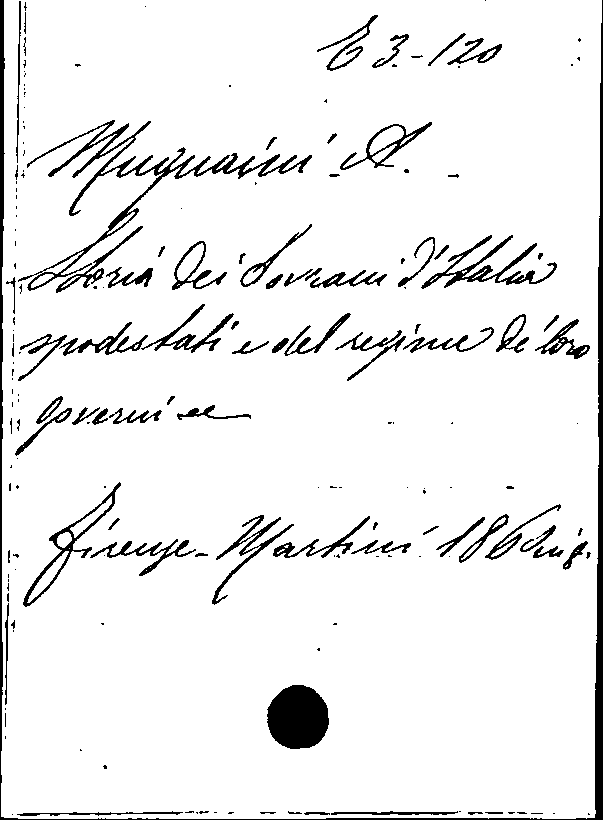 E 3.-120
Mugnaini A.
Storia dei Sovrani d'Italia
spodestati e del regime de' loro
governi ec
Firenze - Martini 186